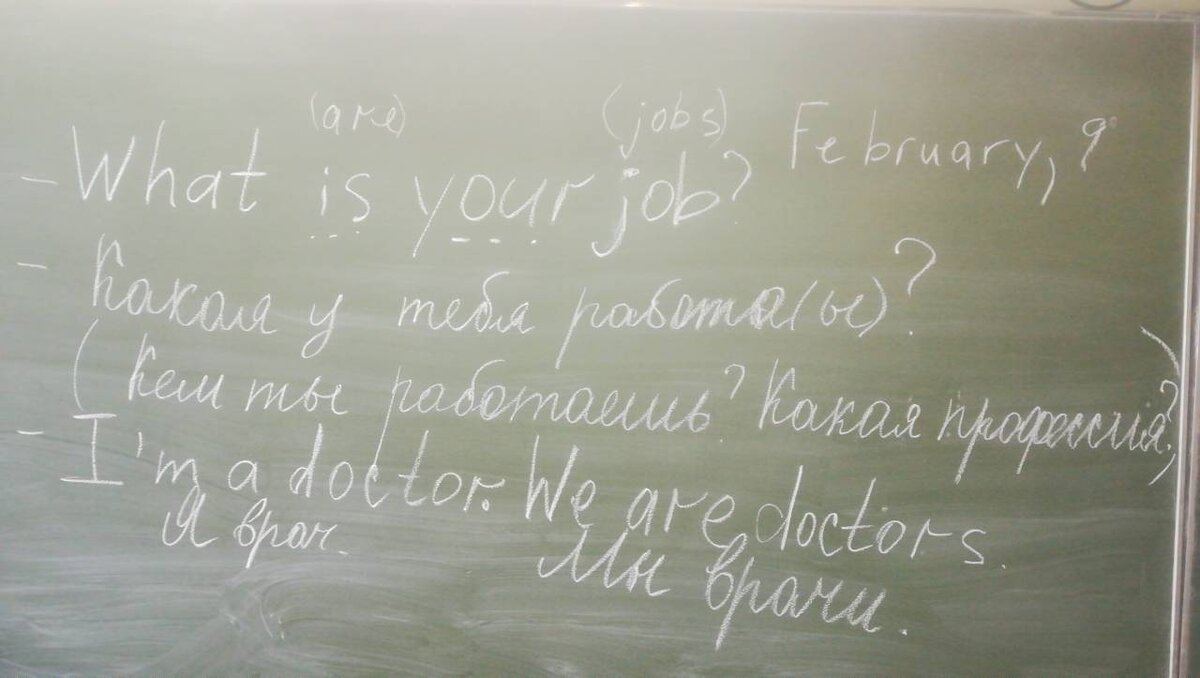 (are) (jobs) February, 9
- What is your job?
- Какая у тебя работа(ы)?
(Кем ты работаешь? Какая профессия?)
- I'm a doctor. We are doctors.
Я врач. Мы врачи.